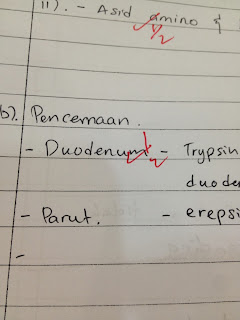 ii). - Asid amino &
1/2
b). Pencernaan.
- Duodenum - Trypsin
duode
- Parut. - erepsi
-